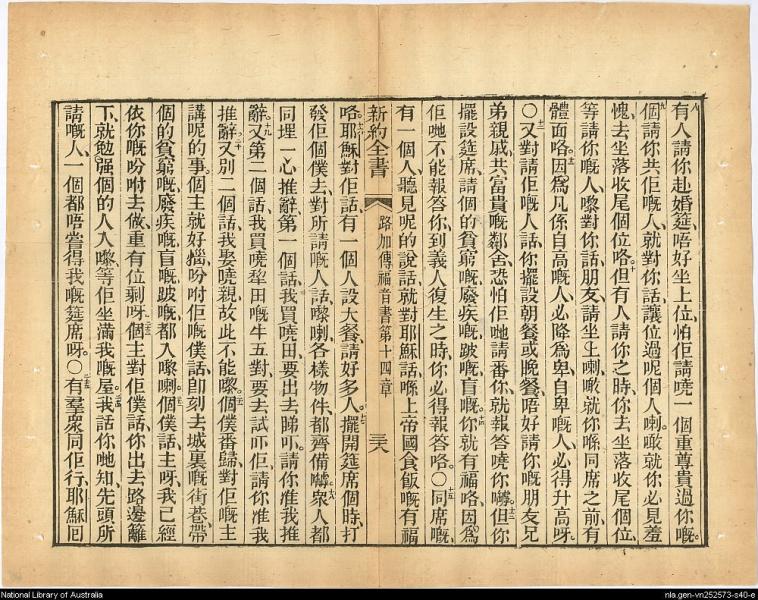 有人請你赴婚筵、唔好坐上位、怕佢請嘵一個重尊貴過你嘅。
個請你共佢嘅人、就對你話、讓位過呢個人喇。噉就你必見羞
愧、去坐落收尾個位咯。但有人請你之時、你去坐落收尾個位、
等請你嘅人嚟對你話、朋友、請坐上喇、噉就你喺同席之前有
體面咯。因爲凡係自高嘅人、必降爲卑、自卑嘅人、必得升高呀。
〇又對請佢嘅人話、你擺設朝餐或晚餐、唔好請你嘅朋友兄
弟親戚、共富貴嘅鄰舍、恐怕佢哋請番你、就報答嘵你嚹。但你
擺設筵席、請個的貧窮嘅、廢疾嘅、跛嘅、盲嘅、你就有福咯、因爲
佢哋不能報答你、到義人復生之時、你必得報答咯。〇同席嘅、
有一個人聽見呢的說話、就對耶穌話、喺上帝國食飯嘅有福
新約全書 路加傳福音書第十四章 三十八
咯。耶穌對佢話、有一個人設大餐、請好多人。擺開筵席個時、打
發佢個僕去、對所請嘅人話、嚟喇、各樣物件、都齊備嚹。衆人都
同埋一心推辭、第一個話、我買嘵田、要出去睇吓、請你准我推
辭。又第二個話、我買嘵犁田嘅牛五對、要去試吓佢、請你准我
推辭。又別二個話、我娶嘵親、故此不能嚟。個僕番歸、對佢嘅主
講呢的事。個主就好惱、吩咐佢嘅僕話、卽刻去城裏嘅街巷、帶
個的貧窮嘅、廢疾嘅、盲嘅、跛嘅、都入嚟喇。個僕話、主呀、我已經
依你嘅吩咐去做、重有位剩呀。個主對佢僕話、你出去路邊籬
下、就勉强個的人入嚟、等佢坐滿我嘅屋。我話你哋知、先頭所
請嘅人、一個都唔嘗得我嘅筵席呀。〇有羣衆同佢行、耶穌囘
National Library of Australia
nla.gen-vn252573-s40-e